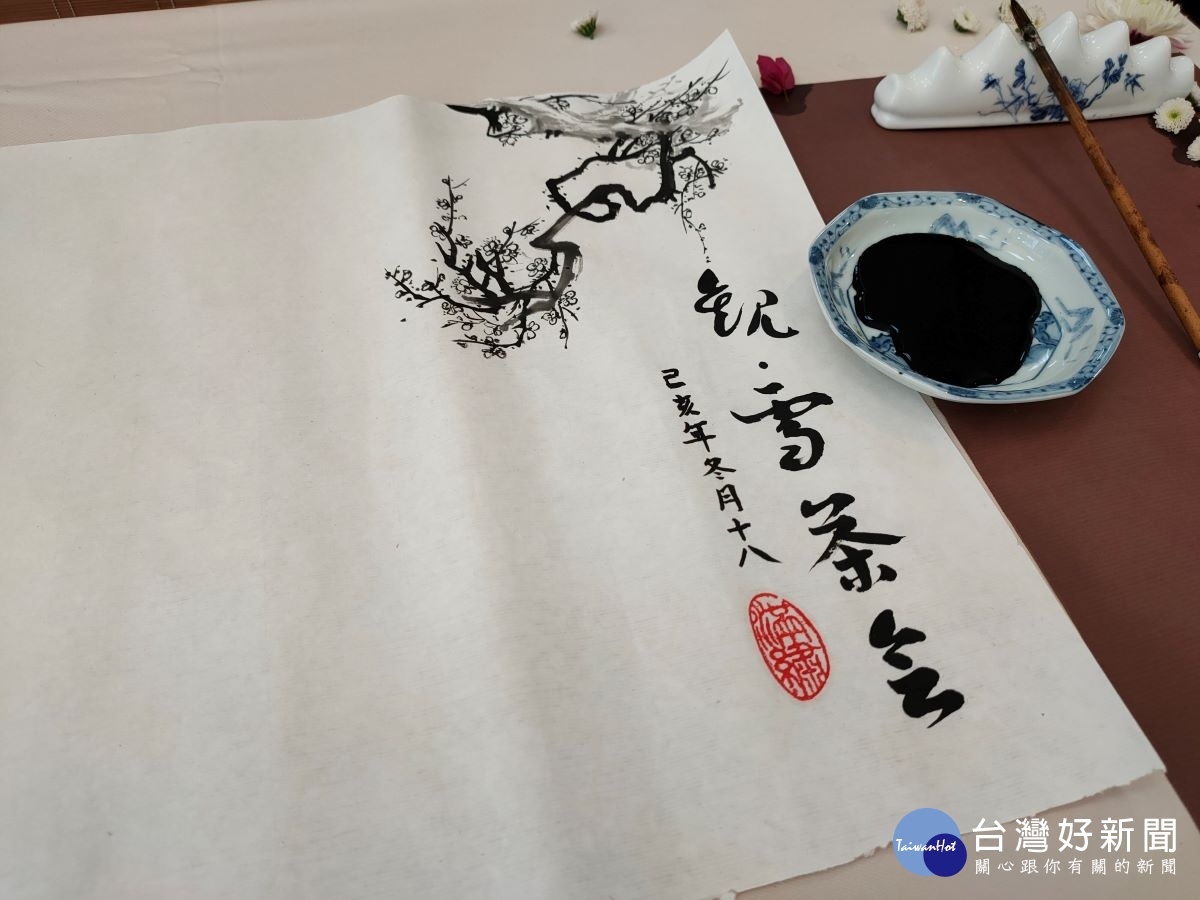 观·雪茶会
己亥年冬月十八
TaiwanHot
台灣好新聞
關心跟你有關的新聞